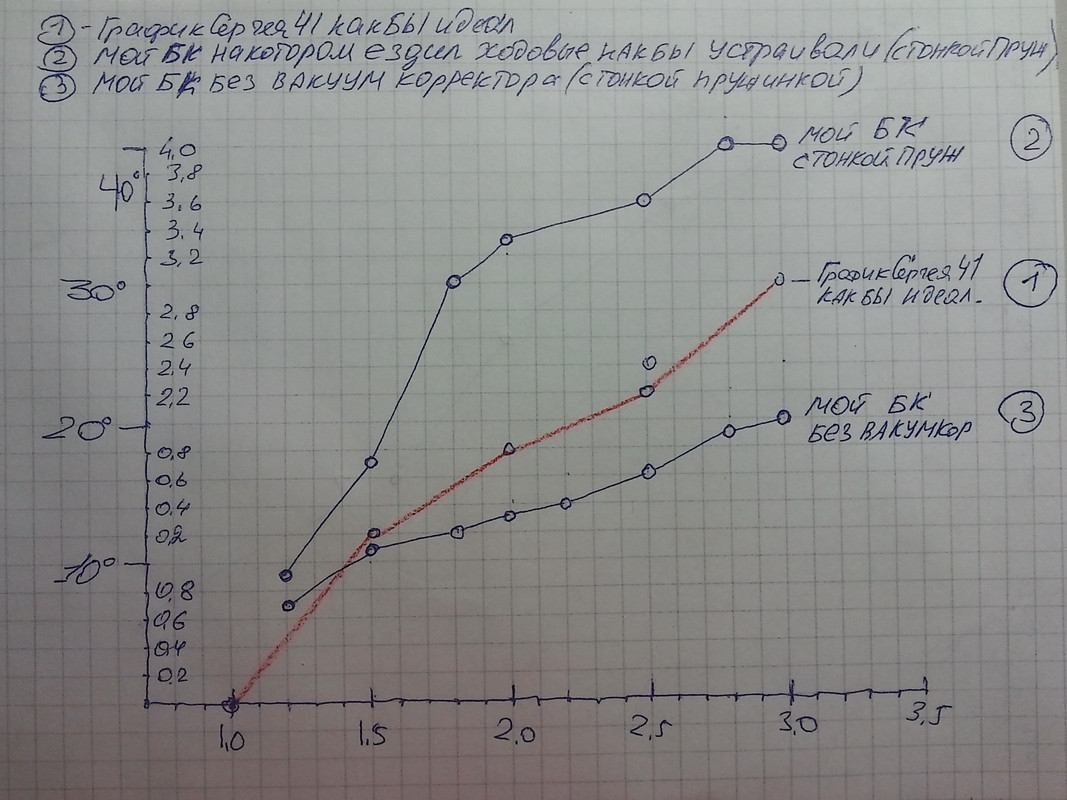 ① - График Сергея 41 как бы идеал
② Мой БК на котором ездил ходовые как бы устраивали (с тонкой Пруж)
③ Мой БК без вакуум корректора (с тонкой пружинкой)
4,0
40°
3,8
3.6
3.4
3,2
30°
2,8
2 6
2,4
2,2
20°
0,8
0,6
0,4
0,2
10°
0,8
0,6
0,4
0,2
1,0 1,5 2,0 2,5 3,0 3,5
мой БК ②
с тонкой Пруж
График Сергея 41 ①
как бы идеал.
мой БК ③
без вакумкор